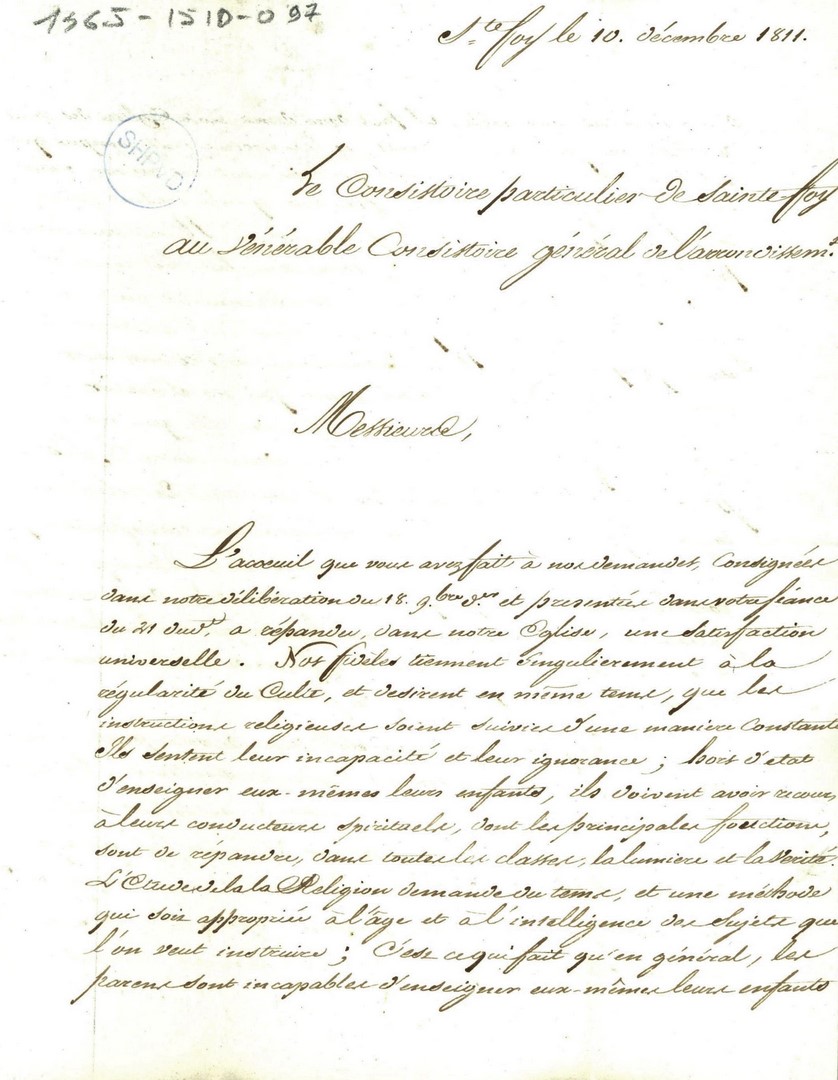 1365-1510-097
Ste foy le 10. décembre 1811.
SHPVD
Le Consistoire particulier de Sainte foy
au Vénérable Consistoire général de l'arrondissemt.
Messieurs,
L'acceuil que vous avez fait à nos demandes, Consignées
dans notre délibération du 18. 9bre der. et présentées dans votre séance
du 21 dud. a répandu, dans notre Eglise, une satisfaction
universelle. Nos fidèles tiennent singulierement à la
régularité du Culte, et desirent en même tems, que les
instructions religieuses soient suivies d'une manière constante
Ils sentent leur incapacité et leur ignorance ; hors d'etat
d'enseigner eux-mêmes leurs enfants, ils doivent avoir recours
à leurs conducteurs spirituels, dont les principales fonctions,
sont de répandre, dans toutes les classes, la lumiere et la Vérité.
L'Etude de la Religion demande du tems, et une méthode
qui soit appropriée à l'âge et à l'intelligence des Sujets que
l'on veut instruire ; C'est ce qui fait qu'en général, les
parens sont incapables d'enseigner eux-mêmes leurs enfants